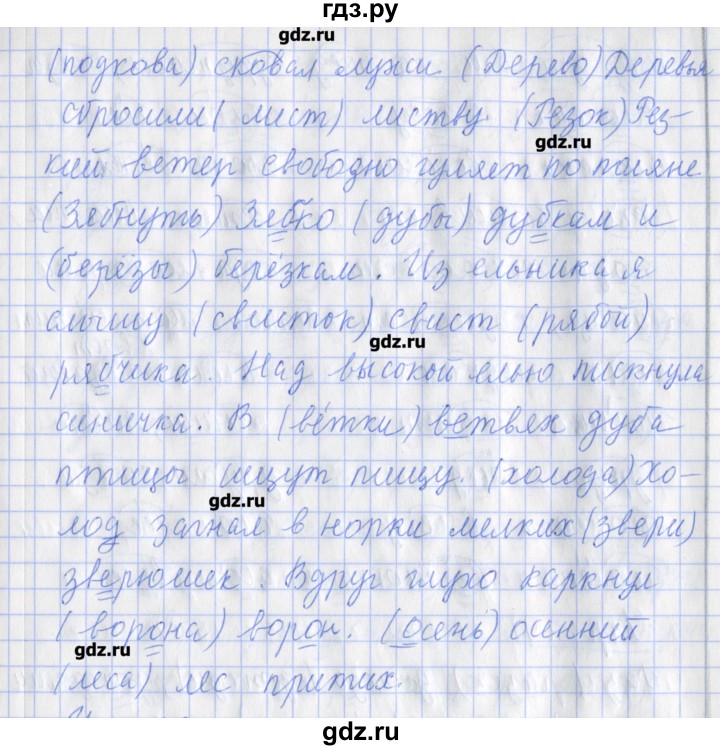 гдз.ру
gdz.ru
(подкова) сковал лужи. (Дерево) Деревья
сбросили (лист) листву. (Резок) Рез-
gdz.ru
кий ветер свободно гуляет по поляне.
(Зябнуть) Зябко (дубы) дубкам и
(берёзы) берёзкам. Из ельника я
слышу (свисток) свист (рябой)
gdz.ru
рябчика. Над высокой елью пискнула
синичка. В (ветки) ветвях дуба
птицы ищут пищу. (холода) Хо-
gdz.ru
лод загнал в норки мелких (звери)
зверюшек. Вдруг глухо каркнул
(ворона) ворон. (осень) осенний
gdz.ru
(леса) лес притих.
gdz.ru